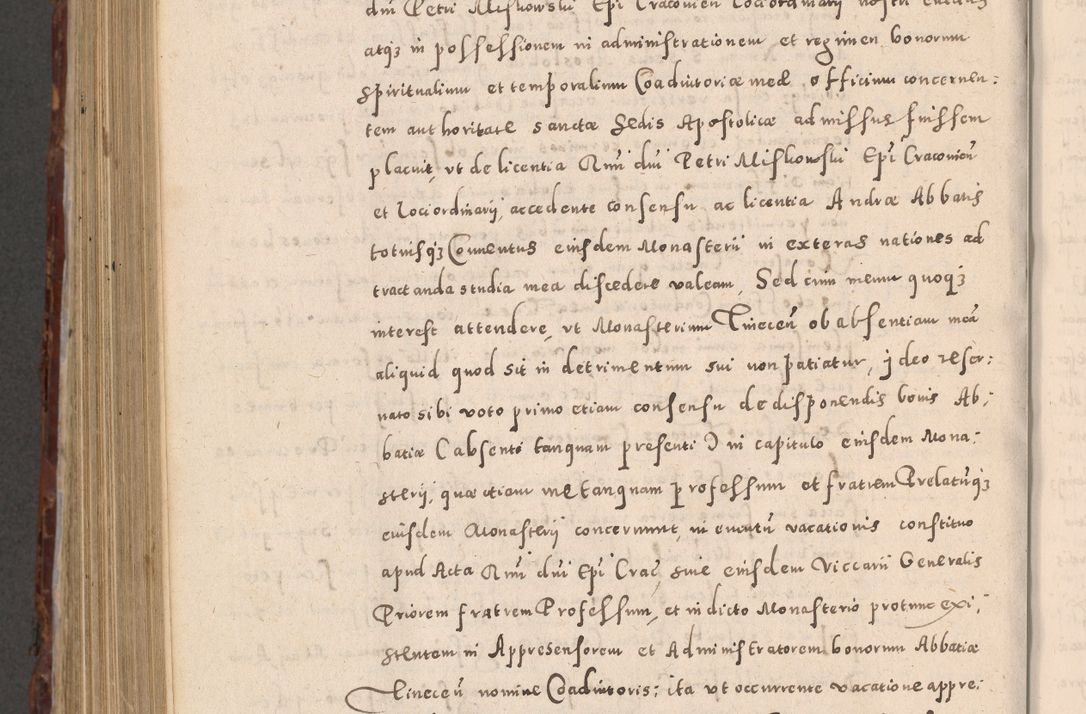 dni Petri Miskowski Epi Cracovien Loci ordinarii nostri
atq3 in possessionem in administrationem et regimen bonorum
spiritualium et temporalium Coadiutoriæ meæ officium concernen:
tem authoritate sanctæ Sedis Apostolicæ admissus fuissem
placuit, vt de licentia Rmi dni Petri Miskowski Epi Cracovien
et loci ordinarij, accedente consensu ac licentia Andreæ Abbatis
totiusq3 Conuentus eiusdem Monasterii in exteras nationes ad
tractanda studia mea discedere valeam, Sed cum meum quoq3
interest attendere, vt Monasterium Tinecen ob absentiam mea
aliquid quod sit in detrimentum sui non patiatur, jdeo reser:
uato sibi voto primo etiam consensu de disponendis bonis Ab:
batiæ (absenti tanquam presenti) in capitulo eiusdem Mona:
sterij, quæ etiam me tanquam professum et fratrem Prelatuq3
eiusdem Monasterij concernunt, in euentu vacationis constituo
apud Acta Rmi dni Epi Crac siue eiusdem Viccarii Generalis
Priorem fratrem Professum, et in dicto Monasterio protunc exi:
stentem in Appresensorem et Administratorem bonorum Abbatiæ
Tinecen nomine Coadiutoris; ita vt occurrente vacatione appre: